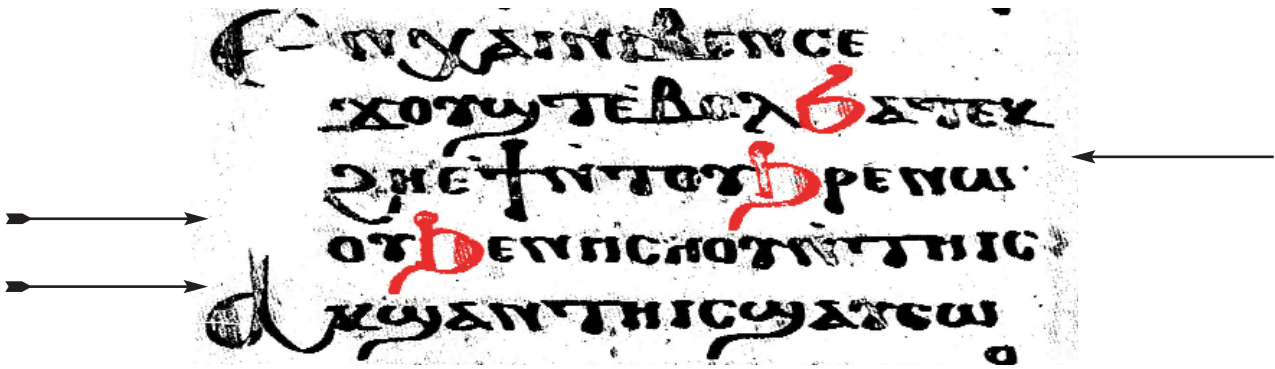 ⲉⲛⲭⲁⲓⲛⲓⲃⲉⲛⲥⲉ
ϫⲟⲩϣⲧⲉⲃⲟⲗϧⲁⲧⲉⲕ
ϩⲏⲉϯⲛⲧⲟⲩϧⲣⲉⲛⲱ
ⲟⲩϧⲉⲛⲡⲥⲏⲟⲩⲛⲧⲏⲓⲥ
ⲁⲕϣⲁⲛⲧⲏⲓⲥϣⲁⲩⲑⲱ